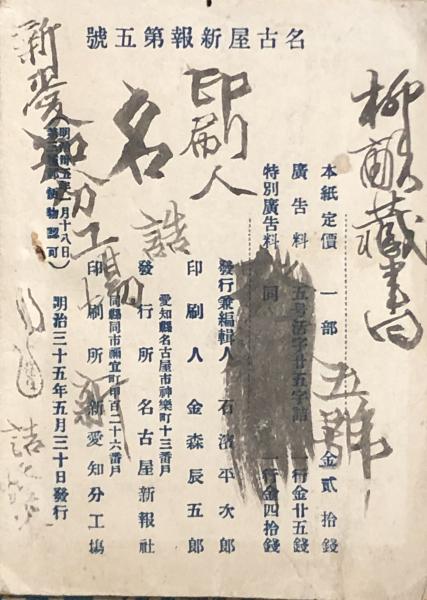 名古屋新報第五號
柳𫝶藏書
五號
本紙定價 一部 金貳拾錢
廣告料 五号活字廿五字詰 一行金廿五錢
特別廣告料 同 一行金四拾錢
發行兼編輯人 石濱平次郎
印刷人 金森辰五郎
愛知縣名古屋市神樂町十三番戶
發行所 名古屋新報社
同縣同市南宜町甲百二十六番戶
印刷所 新愛知分工塲
明治三十五年五月三十日發行
明治卅五年一月十八日
第三種郵便物認可
印刷人
名
誥
新愛知分工場